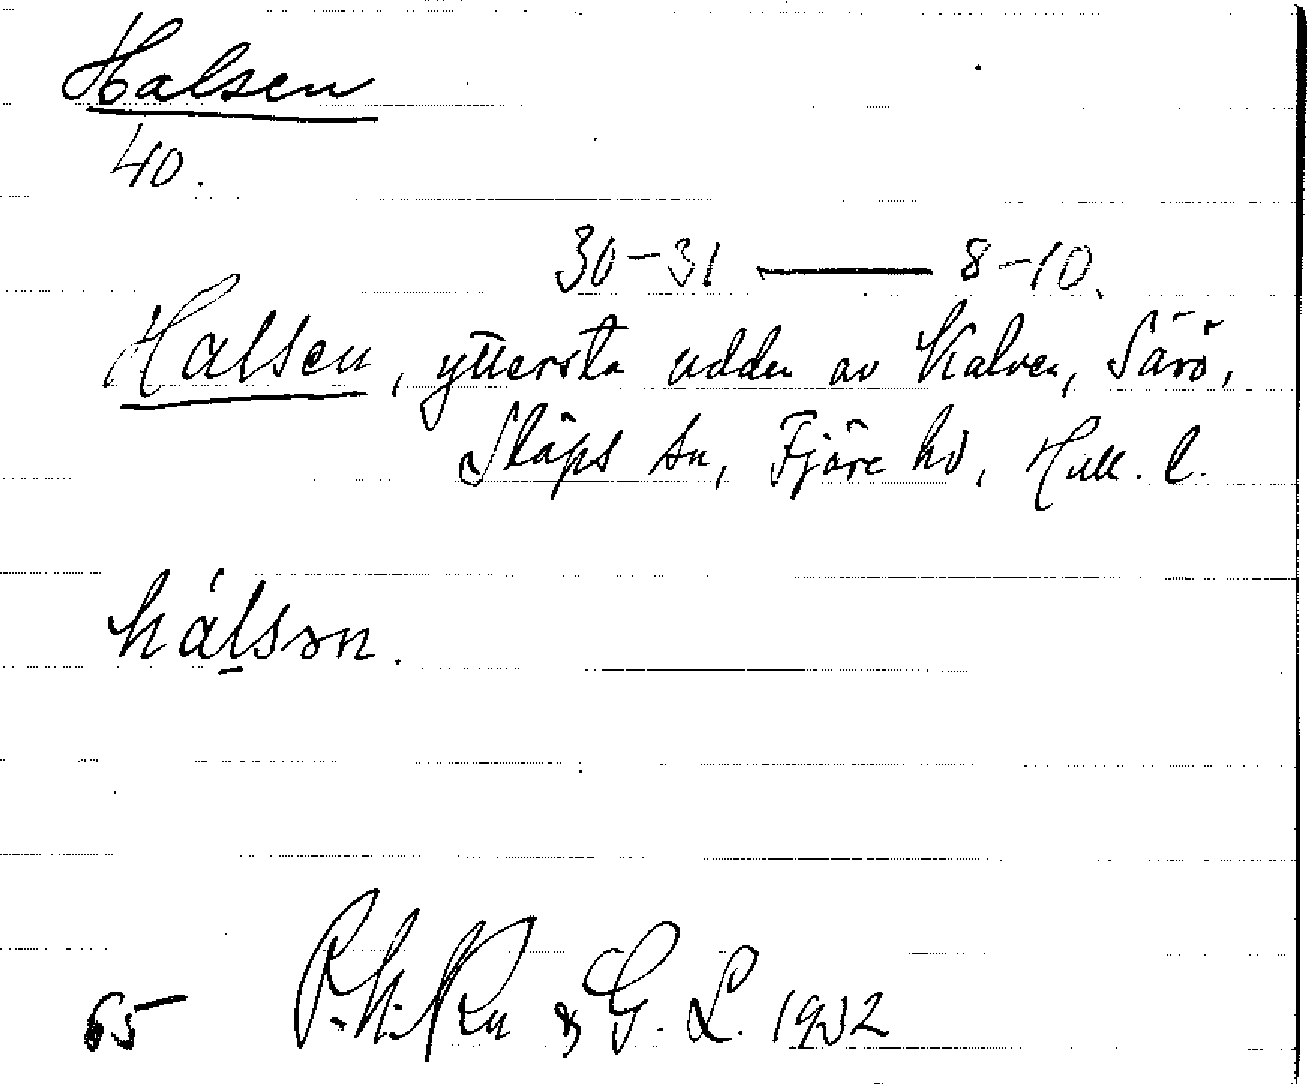 Halsen
40.
30-31 — 8-10.
Halsen, yttersta udden av Kalven, Särö,
Släps sn, Fjäre hd, Hall. l.
hálsən.
65 & G. L. 1932